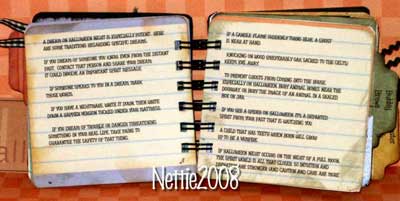 A DREAM ON HALLOWEEN NIGHT IS ESPECIALLY POTENT. HERE
ARE SOME TRADITIONS REGARDING SPECIFIC DREAMS.
IF YOU DREAM OF SOMEONE YOU KNOW EVEN FROM THE DISTANT
PAST, CONTACT THAT PERSON AND SHARE YOUR DREAM.
IT COULD INVOLVE AN IMPORTANT SPIRIT MESSAGE.
IF SOMEONE SPEAKS TO YOU IN A DREAM, MARK
THOSE WORDS.
IF YOU HAVE A NIGHTMARE, WRITE IT DOWN THEN WRITE
DOWN A HAPPIER VERSION TUCKED UNDER YOUR MATTRESS.
IF YOU DREAM OF TROUBLE OR DANGER THREATENING
SOMETHING IN YOUR REAL LIFE, TAKE PAINS TO
GUARANTEE THE SAFETY OF THAT THING.
IF A CANDLE FLAME SUDDENLY TURNS BLUE, A GHOST
IS NEAR AT HAND.
KNOCKING ON WOOD (PREFERABLY OAK, SACRED TO THE CELTS)
KEEPS EVIL AWAY.
TO PREVENT GHOSTS FROM COMING INTO THE HOUSE,
ESPECIALLY ON HALLOWEEN, BURY ANIMAL BONES NEAR THE
DOORWAY OR BURY THE IMAGE OF AN ANIMAL IN A SEALED
BOX OR JAR.
IF YOU SEE A SPIDER ON HALLOWEEN IT'S A DEPARTED
SPIRIT FROM YOUR PAST THAT IS WATCHING YOU.
A CHILD THAT HAS TEETH WHEN BORN WILL GROW
UP TO BE A VAMPIRE.
IF HALLOWEEN NIGHT OCCURS ON THE NIGHT OF A FULL MOON,
THE SPIRIT WORLD IS ALL THAT CLOSER SO INTUITION AND
ARE STRONGER (AND CAUTION AND CARE ARE MORE
Nettie2008